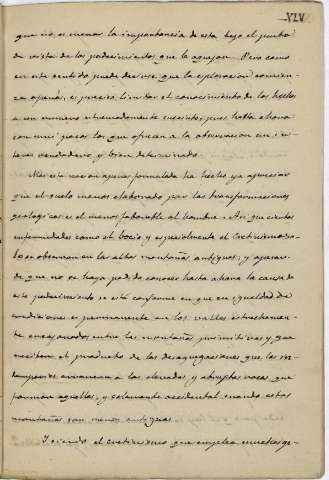 XLV
que no, es menor la importancia de esta bajo el punto
de vista de los padecimientos que la aquejan. Pero como
en este sentido puede decirse que la esploracion comien-
za apenas, es preciso limitar el conocimiento de los hechos
a un numero estremadamente
con muy pocos los que ofrecen a la observacion un in-
teres verdadero y bien determinado.
Mas esta nocion apenas formulada ha hecho ya apreciar
que el suelo menos elaborado por las transformaciones
geologicas es el menos favorable al hombre. Asi que ciertas
enfermedades como el bocio y especialmente el Cretinismo so-
lo se observan en las altas montañas antiguas; y apesar
de que no se haya podido conocer hasta ahora la causa de
este padecimiento se está conforme en que en igualdad de
condiciones es permanente en los valles estrechamen-
te encajonados entre las montañas primitivas y que
reciben el producto de las desagregaciones que la in-
temperie arrancan a las elevadas y abruptas rocas que
forman aquellas, y solamente accidental cuando estas
montañas son menos antiguas.
Y siendo el cretinismo que implica muchas ge-